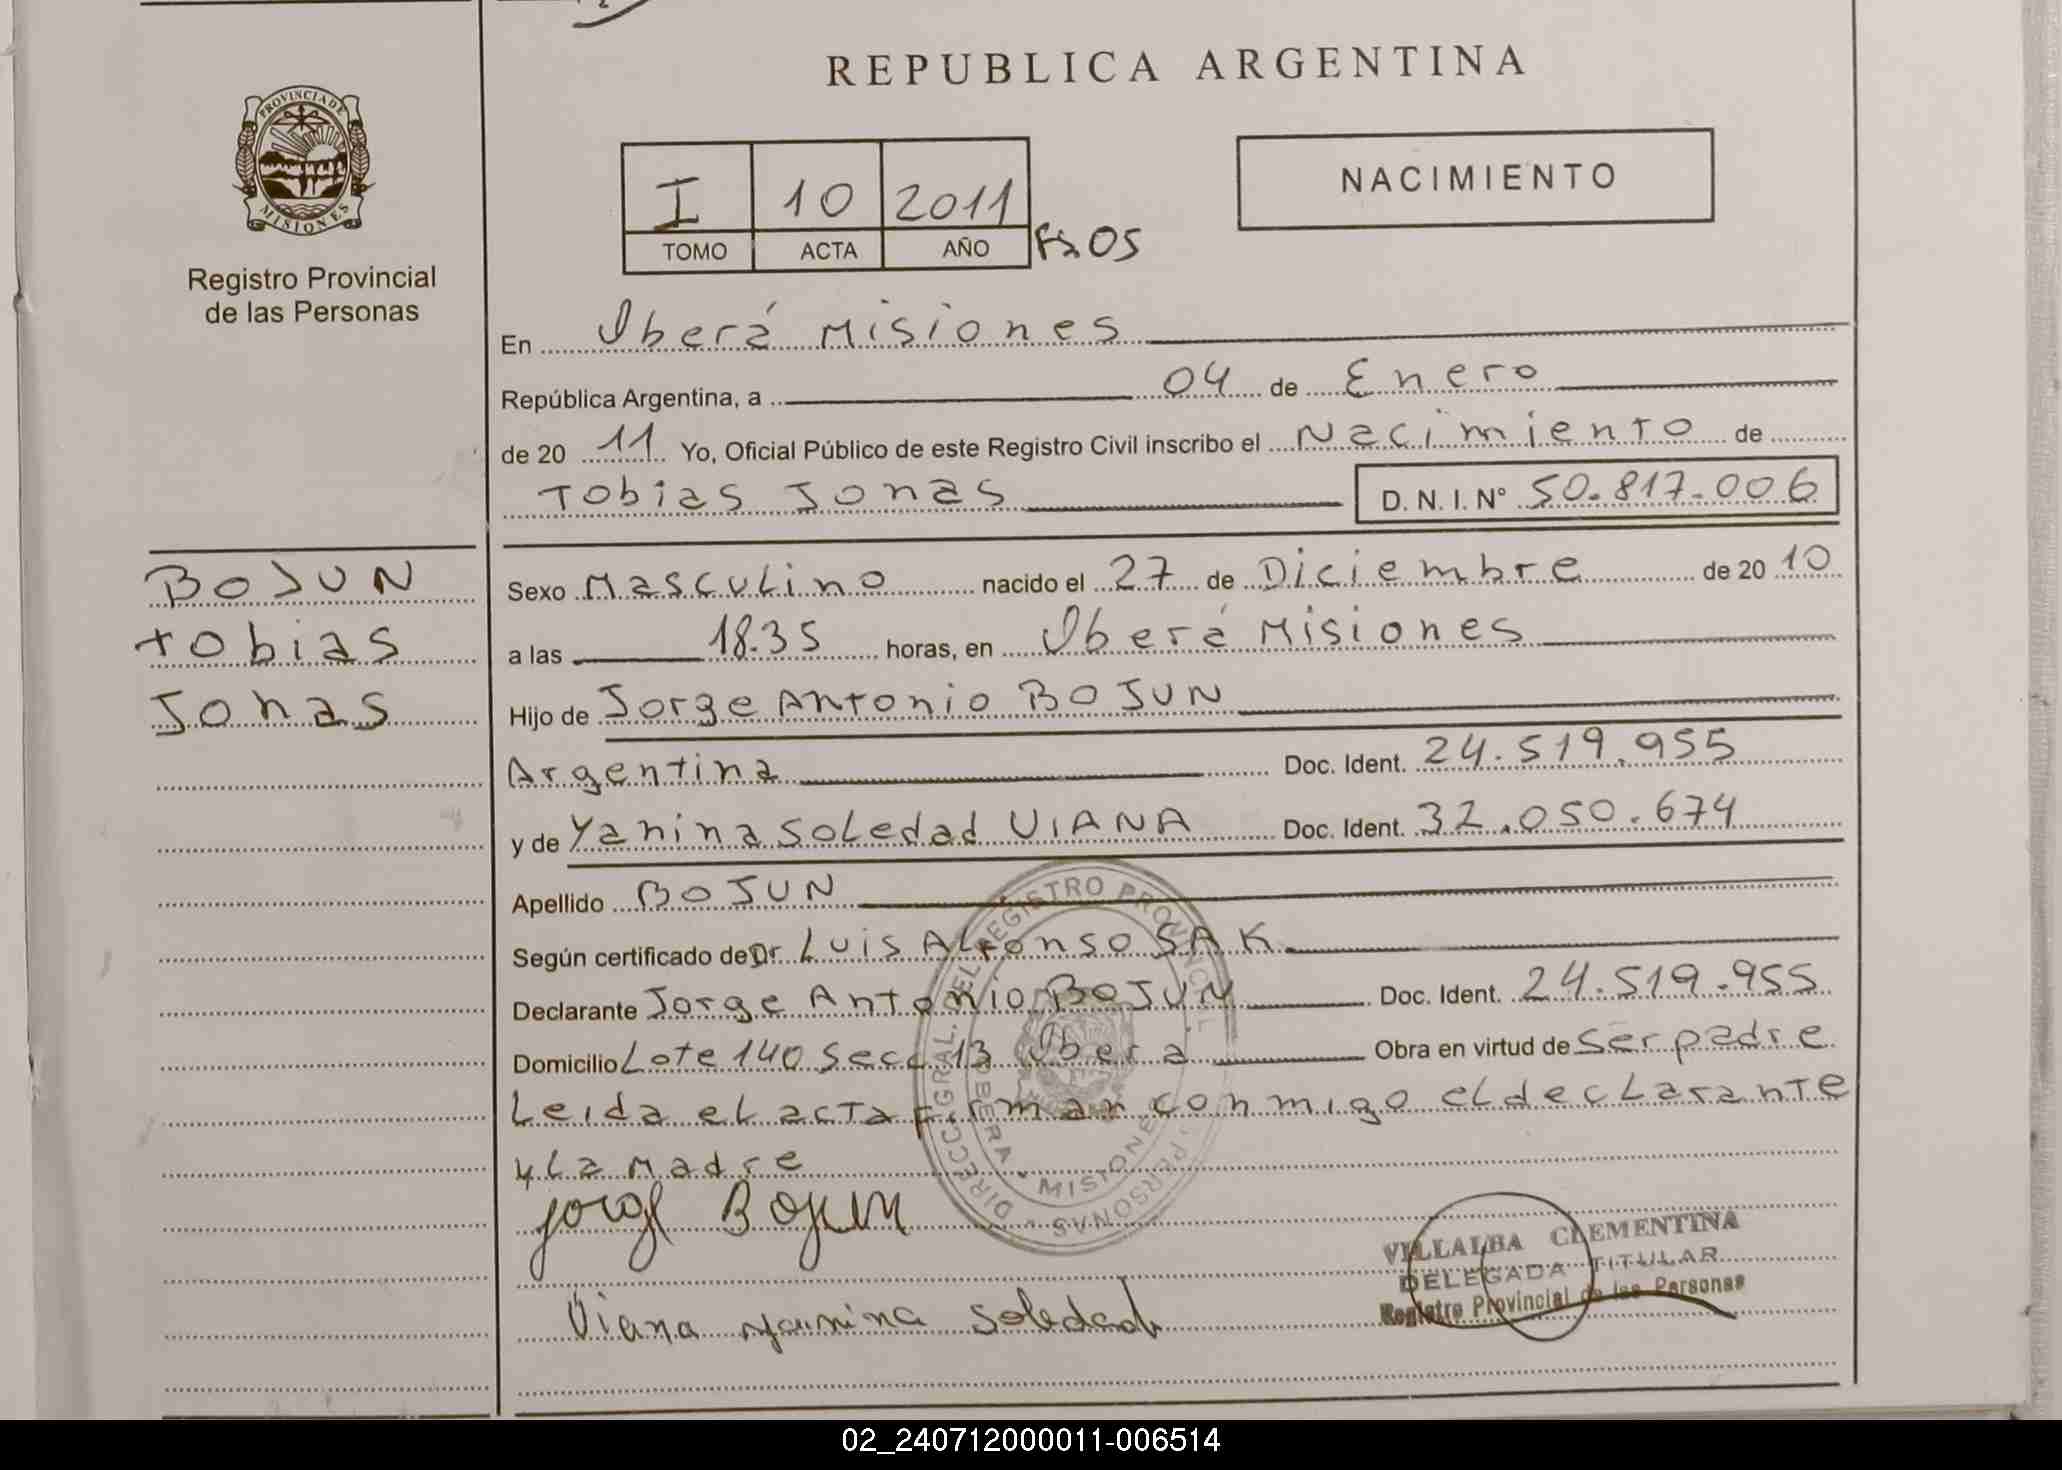 REPUBLICA ARGENTINA
PROVINCIA DE
MISIONES
Registro Provincial
de las Personas
I 10 2011
TOMO ACTA AÑO
Fs 05
NACIMIENTO
En Oberá Misiones
República Argentina, a 04 de Enero
de 20 11 Yo, Oficial Público de este Registro Civil inscribo el Nacimiento de
Tobias Jonas D. N. I. N° 50.817.006
BOJUN
Tobias
Jonas
Sexo Masculino nacido el 27 de Diciembre de 20 10
a las 18.35 horas, en Oberá Misiones
Hijo de Jorge Antonio BOJUN
Argentina Doc. Ident. 24.519.955
y de Yanina Soledad VIANA Doc. Ident. 32.050.674
Apellido BOJUN
Según certificado de Dr Luis Alfonso SAK
Declarante Jorge Antonio BOJUN Doc. Ident. 24.519.955
Domicilio Lote 140 Secc 13 Oberá Obra en virtud de ser padre
Leida el acta firman conmigo el declarante
y la Madre
DIRECC. GRAL. DEL REGISTRO PROVINCIAL PERSONAS
OBERA - MISIONES
Jorge Bojun
Viana Yanina Soledad
VILLALBA CLEMENTINA
DELEGADA TITULAR
Registro Provincial de las Personas
02_240712000011-006514